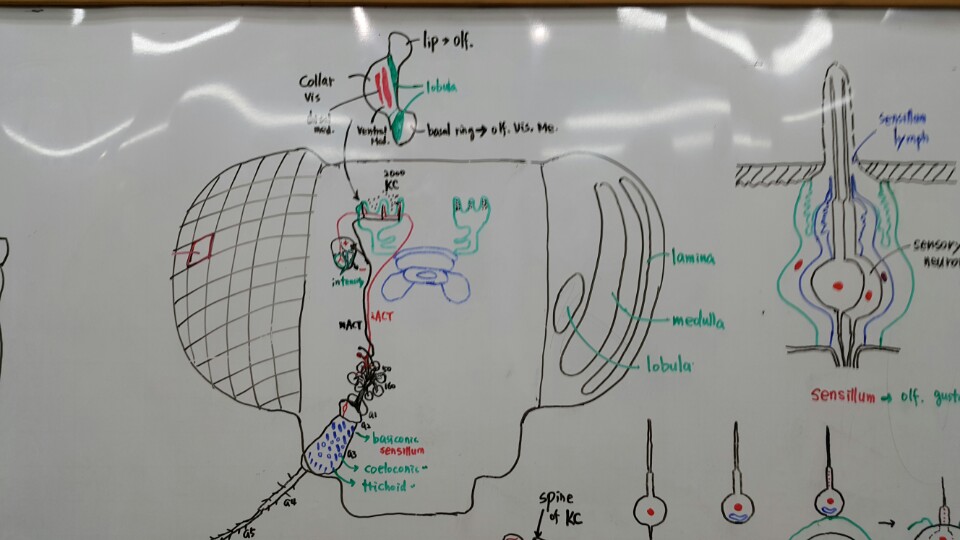 lip → olf.
Collar
Vis
med.
lobula
ventral
Med.
basal ring → olf. Vis. Me.
2000
KC
sensillum
lymph
sensory
neuro
lamina
medulla
lobula
mACT
iACT
50
160
G1
G2
G3
basiconic
sensillum
coeloconic -
trichoid -
G4
G5
Sensillum → olf. gust
spine
of KC